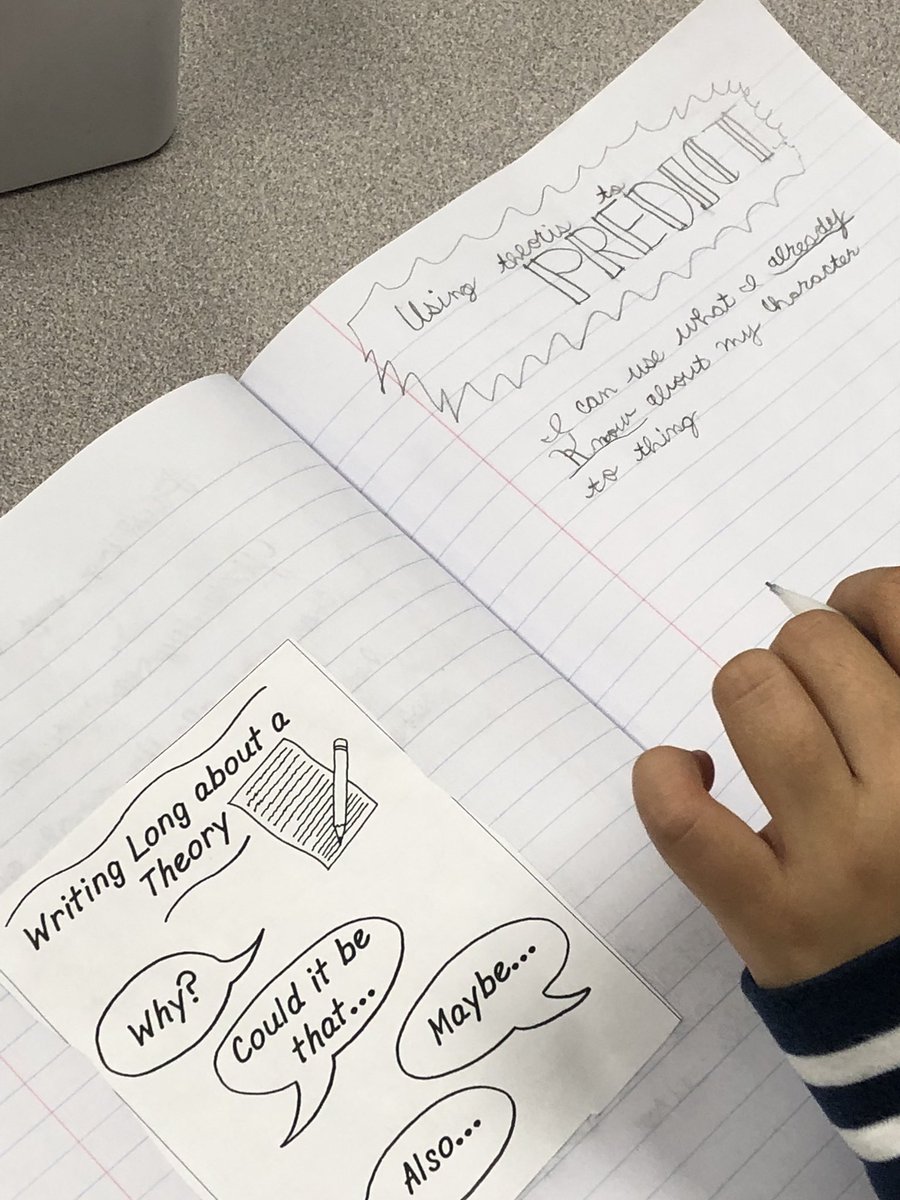 Using theoris to
PREDICT
I can use what I already
Know about my character
to thing
Writing Long about a
Theory
Why?
Could it be
that...
Maybe...
Also...